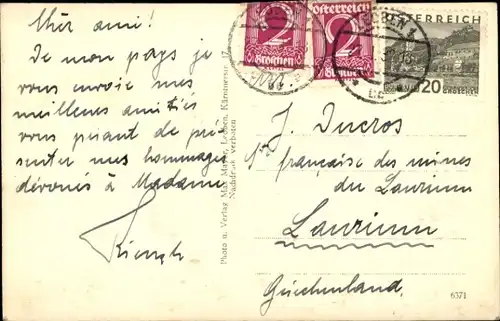 Cher ami!
De mon pays je
vous envoie mes
meilleures amitiés
vous priant de pré-
senter mes hommages
dévoués à Madame
Photo u. Verlag Max Mayer, Leoben, Kärntnerstr. 17
Nachdruck verboten
2 Österreich 2
Groschen Groschen
LEOBEN 1
ÖSTERREICH
20
GROSCHEN
J. Ducros
française des mines
du Laurium
Laurium
Griechenland.
6371